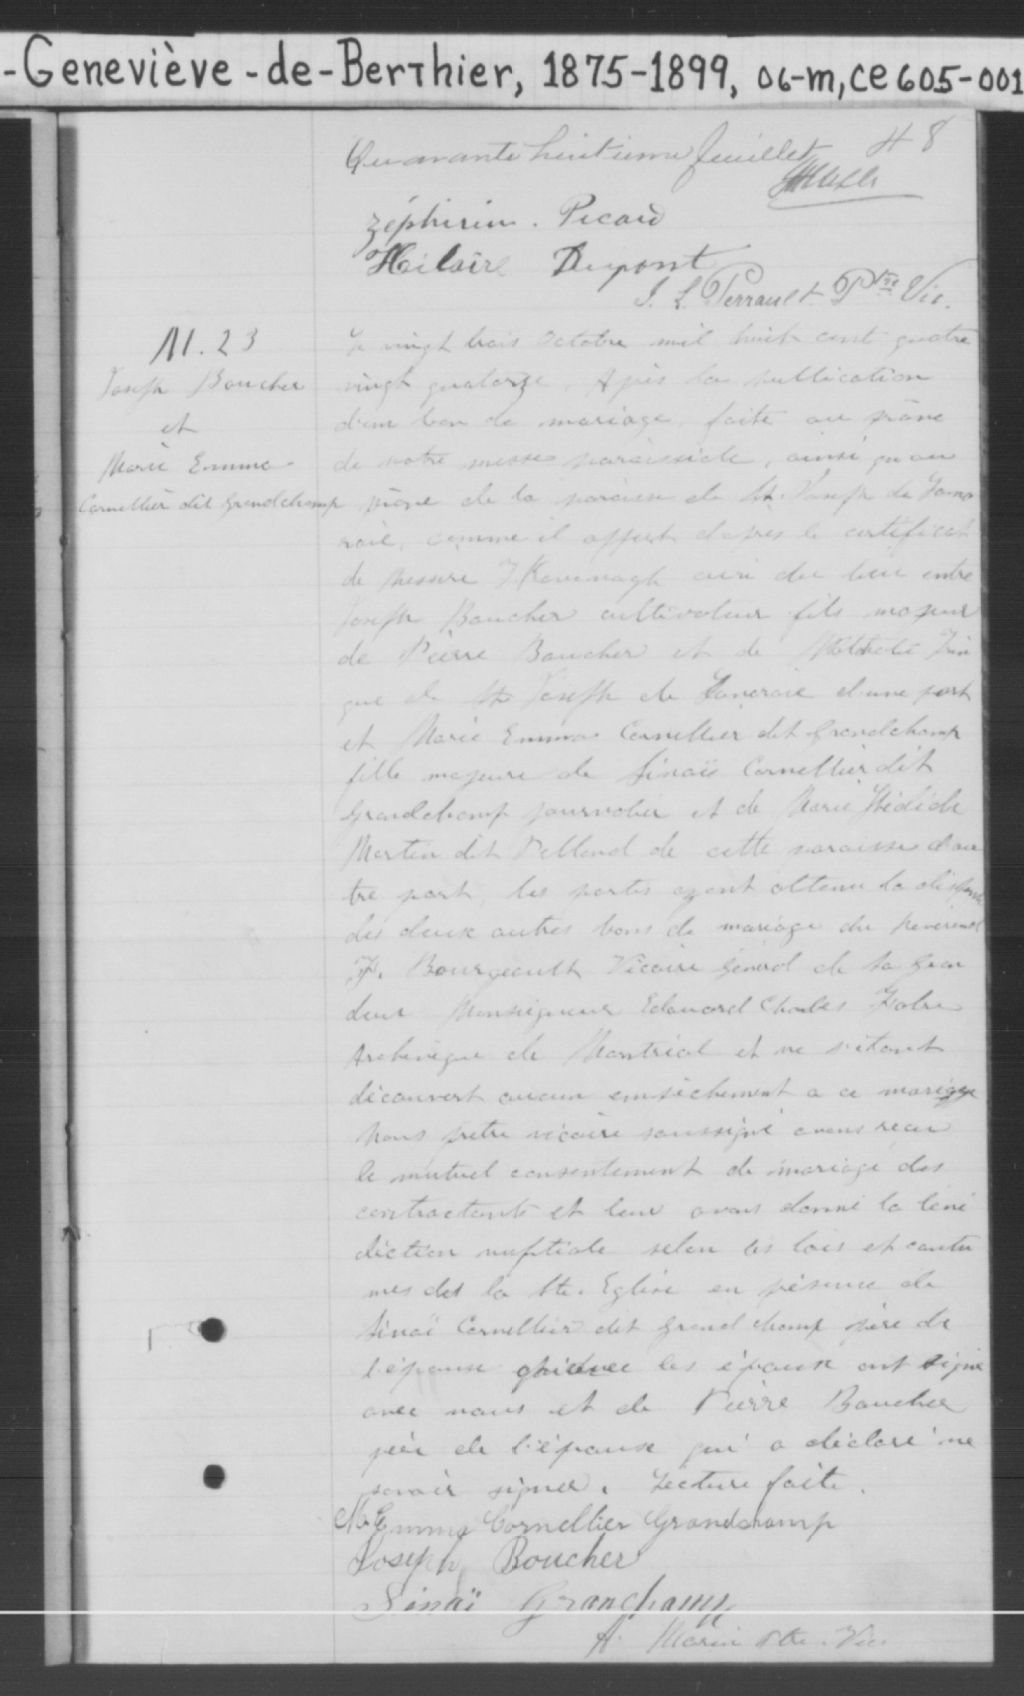 -Geneviève-de-Berthier, 1875-1899, 06-m, CE605-001
Quarante huitieme feuillet 48
Zéphirin. Picard
Hilaire Dupont
J. L. Perrault Ptre Vic.
M. 23
Joseph Boucher
et
Marie Emma
Cornellier dit Grandchamp
Le vingt trois Octobre mil huit cent quatre
vingt quatorze, Après la publication
d'un ban de mariage, faite au prône
de notre messe paroissiale, ainsi qu'au
prône de la paroisse de St. Joseph de Lano
raie, comme il appert d'après le certificat
de Messire Kavanagh curé du lieu entre
Joseph Boucher cultivateur fils majeur
de Pierre Boucher et de
de St Joseph de Lanoraie d'une part
et Marie Emma Cornellier dit Grandchamp
fille majeure de Sinaï Cornellier dit
Grandchamp journalier et de Marie
Martin dit Pelland de cette paroisse d'au
tre part, les parties ayant obtenu la dispense
des deux autres bans de mariage du Révérend
F. Bourgeault Vicaire Général de Sa Gran
deur Monseigneur Edouard Charles Fabre
Archevêque de Montréal et ne s'étant
découvert aucun empêchement a ce mariage
Nous prêtre vicaire soussigné avons reçu
le mutuel consentement de mariage des
contractants et leur avons donné la béné
diction nuptiale selon les lois et coutu
mes de la Ste. Eglise en présence de
Sinaï Cornellier dit Grandchamp père de
l'épouse les époux ont signé
avec nous et de Pierre Boucher
père de l'épouse qui a déclaré ne
savoir signer. Lecture faite.
M. Emma Cornellier Grandchamp
Joseph Boucher
Sinaï Granchamp
A. Marin Ptre. Vic